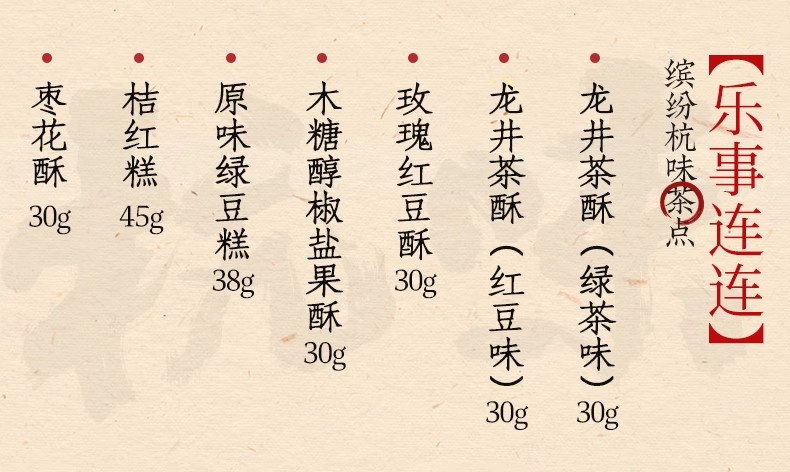 【乐事连连】
缤纷杭味茶点
龙井茶酥（绿茶味）30g
龙井茶酥（红豆味）30g
玫瑰红豆酥30g
木糖醇椒盐果酥30g
原味绿豆糕38g
桔红糕45g
枣花酥30g